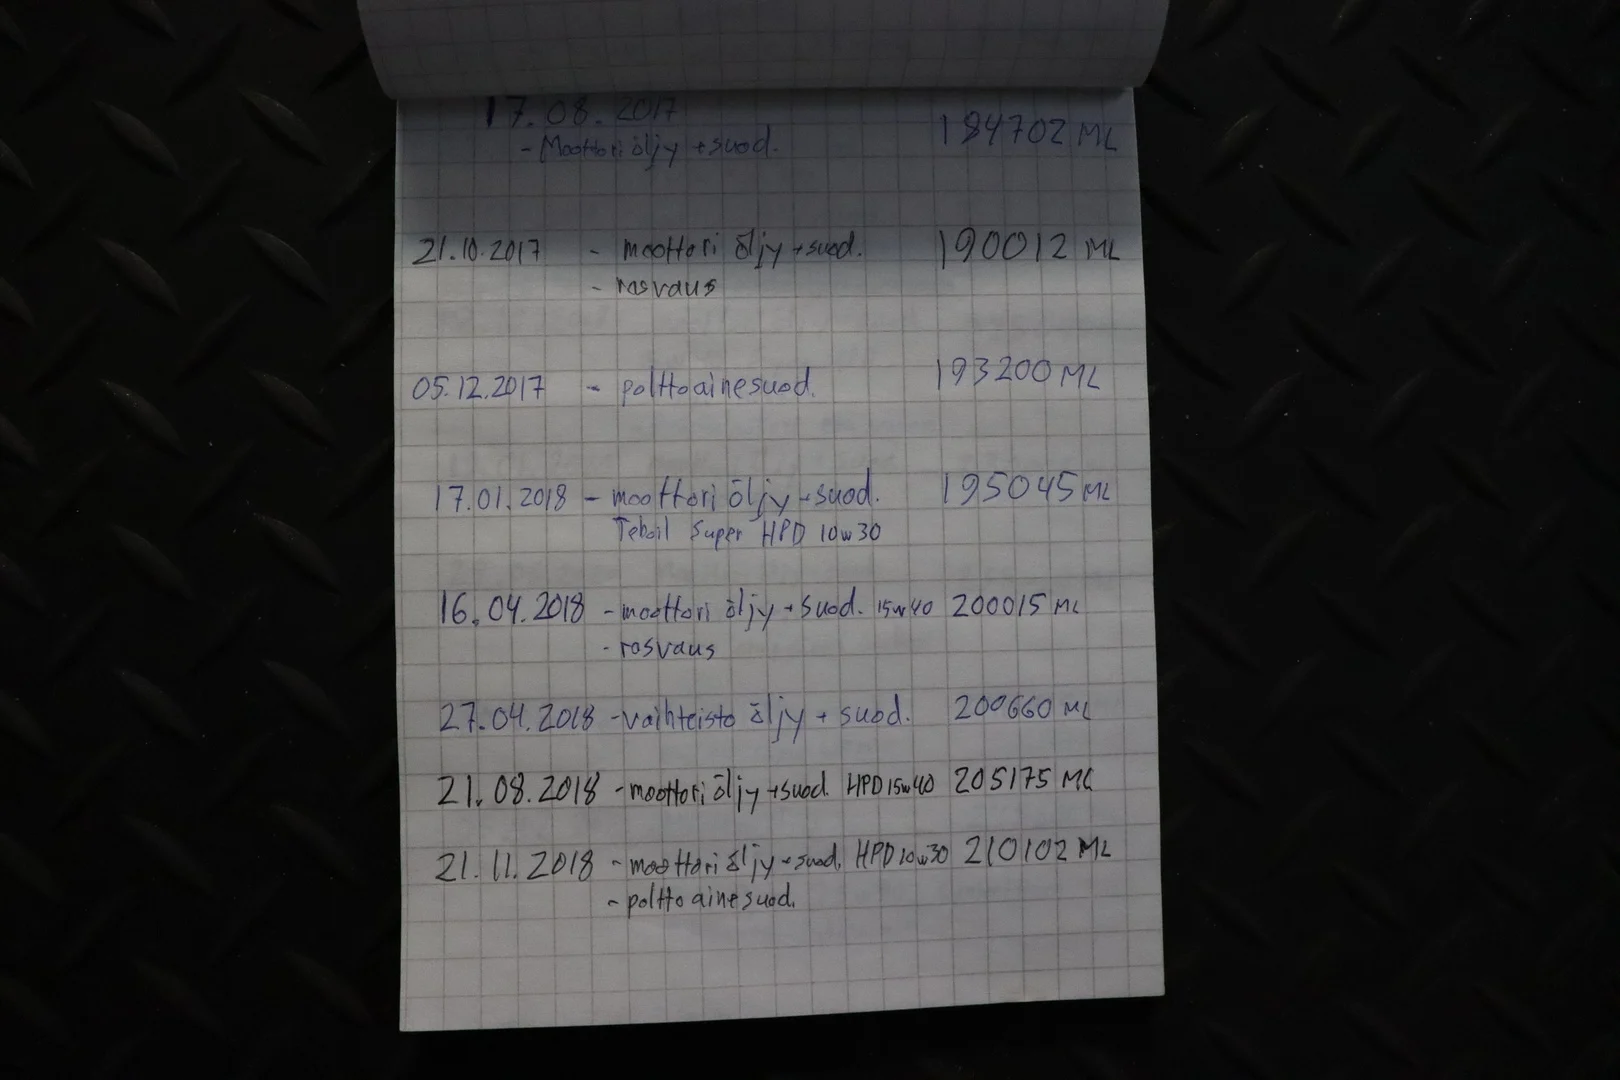 17.08.2017 184702 ML
- Moottori öljy + suod.
21.10.2017 - moottori öljy + suod. 190012 ML
- rasvaus
05.12.2017 - polttoainesuod. 193200 ML
17.01.2018 - moottori öljy + suod. 195045 ML
Teboil Super HPD 10w30
16.04.2018 - moottori öljy + suod. 15w40 200015 ML
- rasvaus
27.04.2018 - vaihteisto öljy + suod. 200660 ML
21.08.2018 - moottori öljy + suod. HPD 15w40 205175 ML
21.11.2018 - moottori öljy + suod. HPD 10w30 210102 ML
- polttoainesuod.